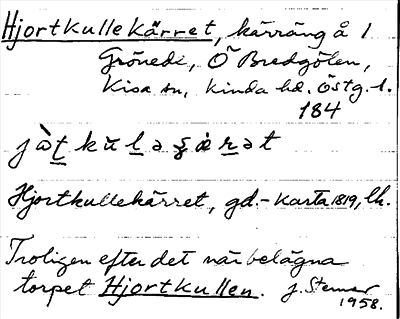 Hjortkullekärret, kärräng å 1
Grönede, Ö Bredgölen,
Kisa sn, Kinda hd. Östg. l.
184
jὰt̲ kὺ l̲ ə ʂ æ̇ r̲ ə t
Hjortkullekärret, gd.- Karta 1819, lh.
Troligen efter det närbelägna
torpet Hjortkullen. J. Sterner
1958.